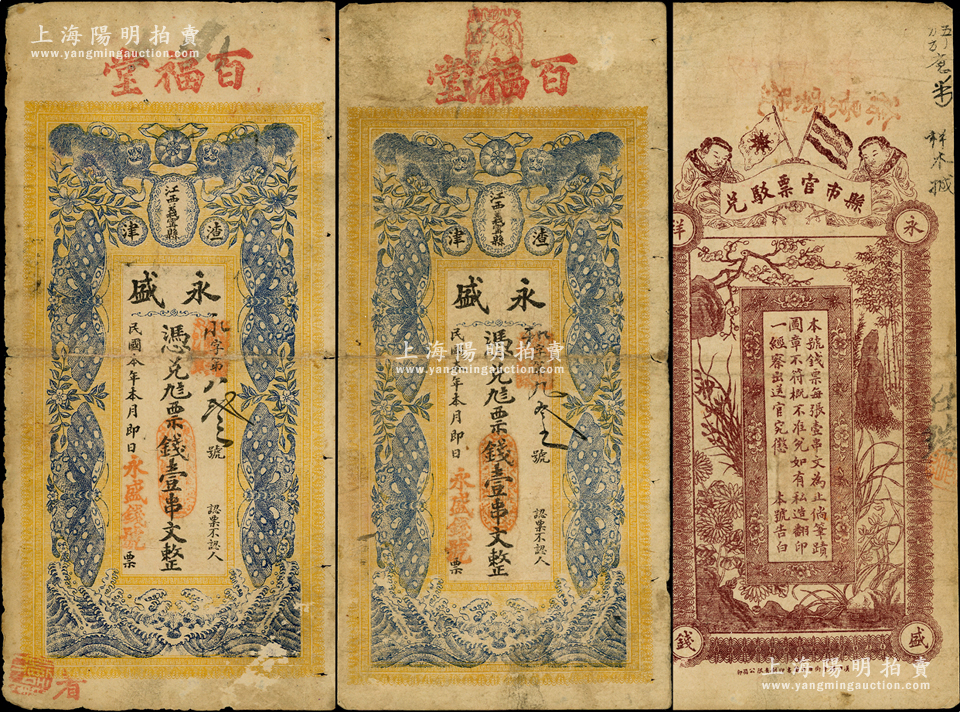 上海陽明拍賣
www.yangmingauction.com
百福堂
江西義寧縣
渣津
永盛
字第 號
憑兌 票錢壹串文整
民國 年本月即日
永盛錢號
票
認票不認人
上海陽明拍賣
www.yangmingauction.com
百福堂
江西義寧縣
渣津
永盛
字 號
憑兌 票錢壹串文整
民國 年本月即日
永盛錢號
票
認票不認人
上海陽明拍賣
www.yangmingauction.com
縣市官票駁兌
永祥
本號錢票每張壹串文為止倘筆蹟
圖章不符概不准兌如有私造翻印
一經察出送官究懲 本號告白
盛錢
上海陽明拍賣
www.yangmingauction.com